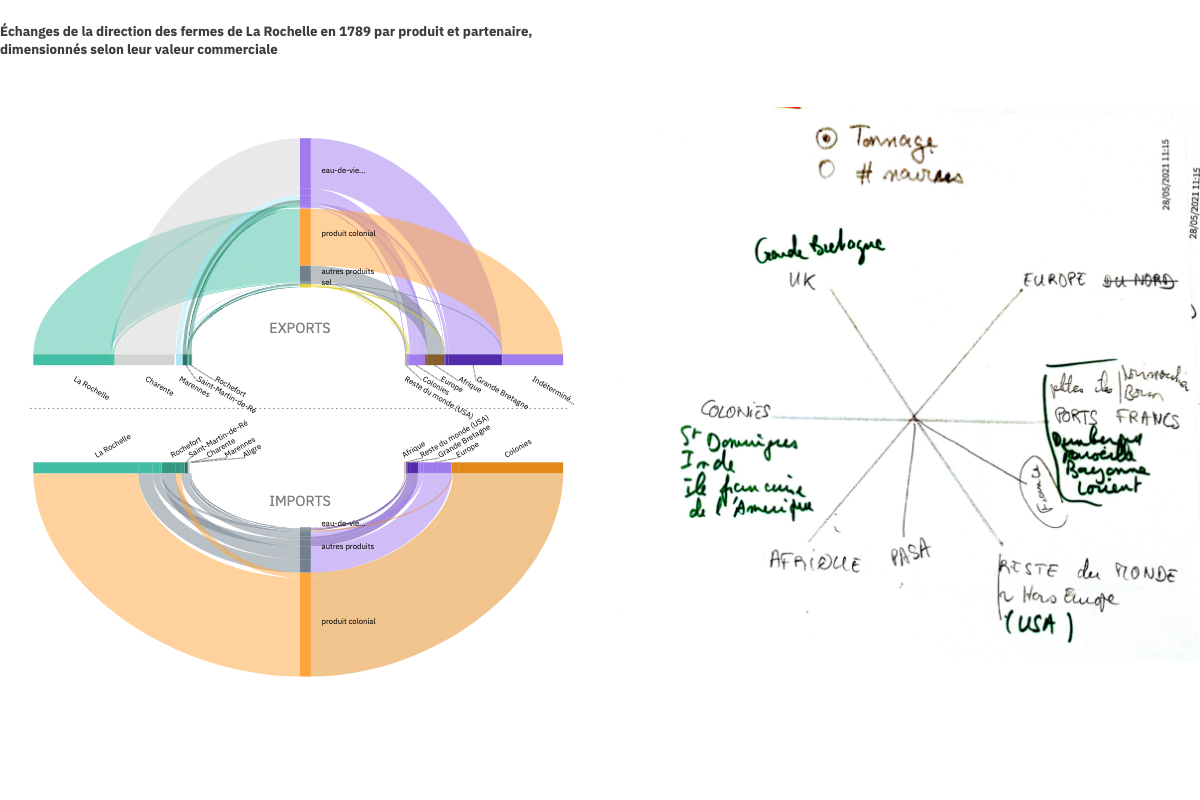 Échanges de la direction des fermes de La Rochelle en 1789 par produit et partenaire,
dimensionnés selon leur valeur commerciale
eau-de-vie...
produit colonial
autres produits
sel
EXPORTS
La Rochelle
Charente
Marennes
Saint-Martin-de-Ré
Rochefort
Reste du monde (USA)
Colonies
Europe
Afrique
Grande Bretagne
Indéterminé...
La Rochelle
Rochefort
Saint-Martin-de-Ré
Charente
Marennes
Aligre
Afrique
Reste du monde (USA)
Grande Bretagne
Europe
Colonies
IMPORTS
eau-de-vie...
autres produits
produit colonial
Tonnage
# navires
28/05/2021 11:15
28/05/2021 11:15
Grande Bretagne
UK
EUROPE DU NORD
COLONIES
St Domingues
Inde
île francaise
de l'Amerique
PORTS FRANCS
Dunkerque
Marseille
Bayonne
Lorient
France
AFRIQUE
PASA
RESTE du MONDE
Hors Europe
(USA)